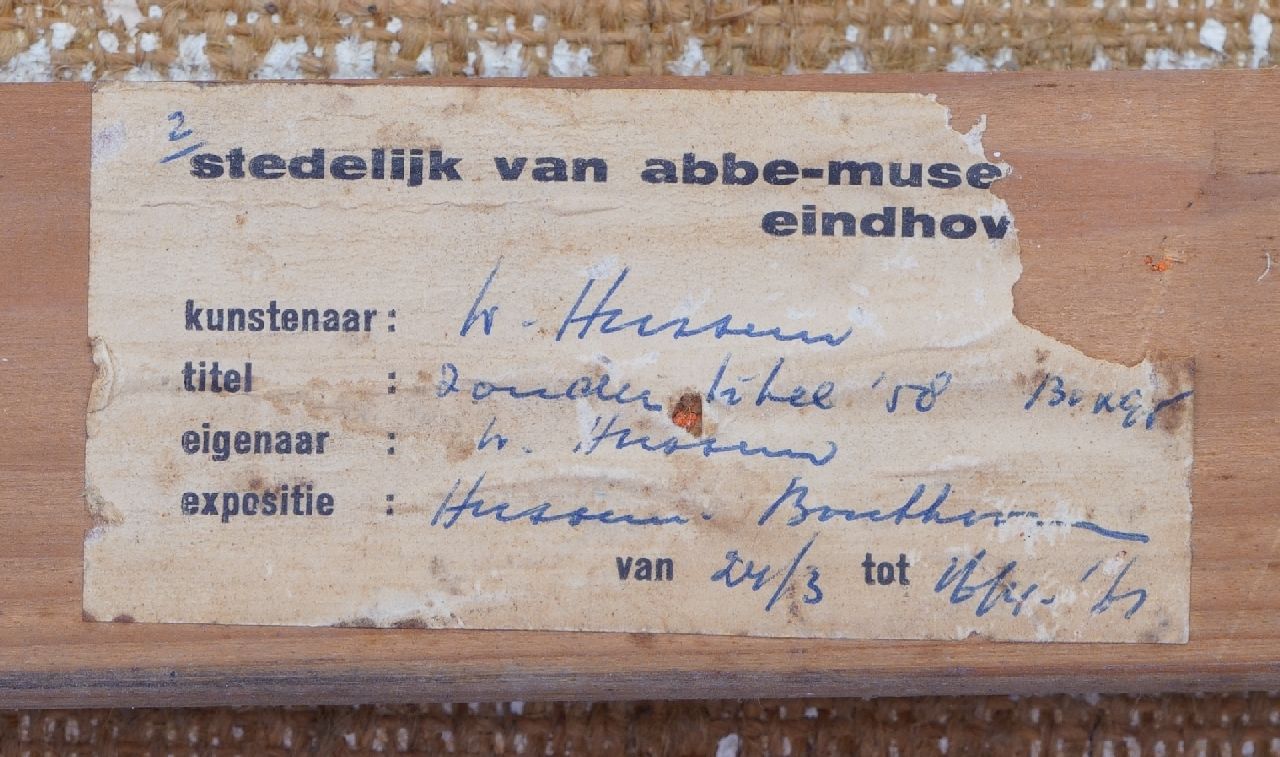 2/
stedelijk van abbe-muse
eindhov
kunstenaar : W. Hussem
titel : zonder titel '58
eigenaar : W. Hussem
expositie : Hussem - Bouthoorn
van 24/3 tot